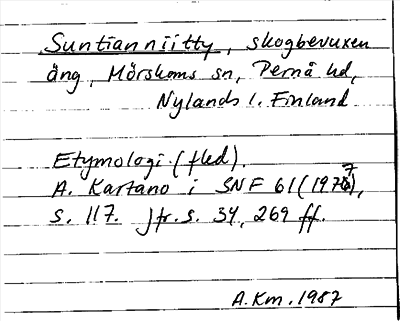 Suntianniitty, skogbevuxen
äng, Mörskoms sn, Pernå hd,
Nylands l. Finland
Etymologi (fled).
A. Kartano i SNF 61 (1977),
s. 117. Jfr. s. 34, 269 ff.
A.Km. 1987